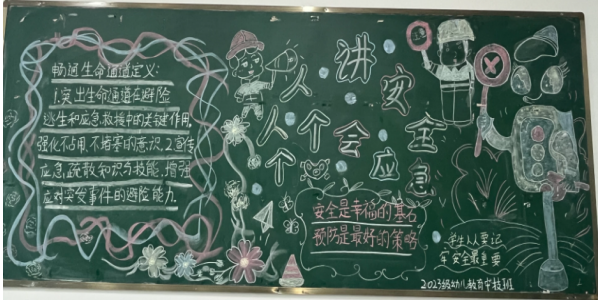 畅通生命通道定义:
1.突出生命通道在避险
逃生和应急救援中的关键作用
强化不占用、不堵塞的意识.2.宣传
应急,疏散知识与技能,增强
应对突发事件的避险能力.
人人讲安全
个个会应急
安全是幸福的基石
预防是最好的策略
学生人人要记
牢安全最重要
2023级幼儿教育中技班